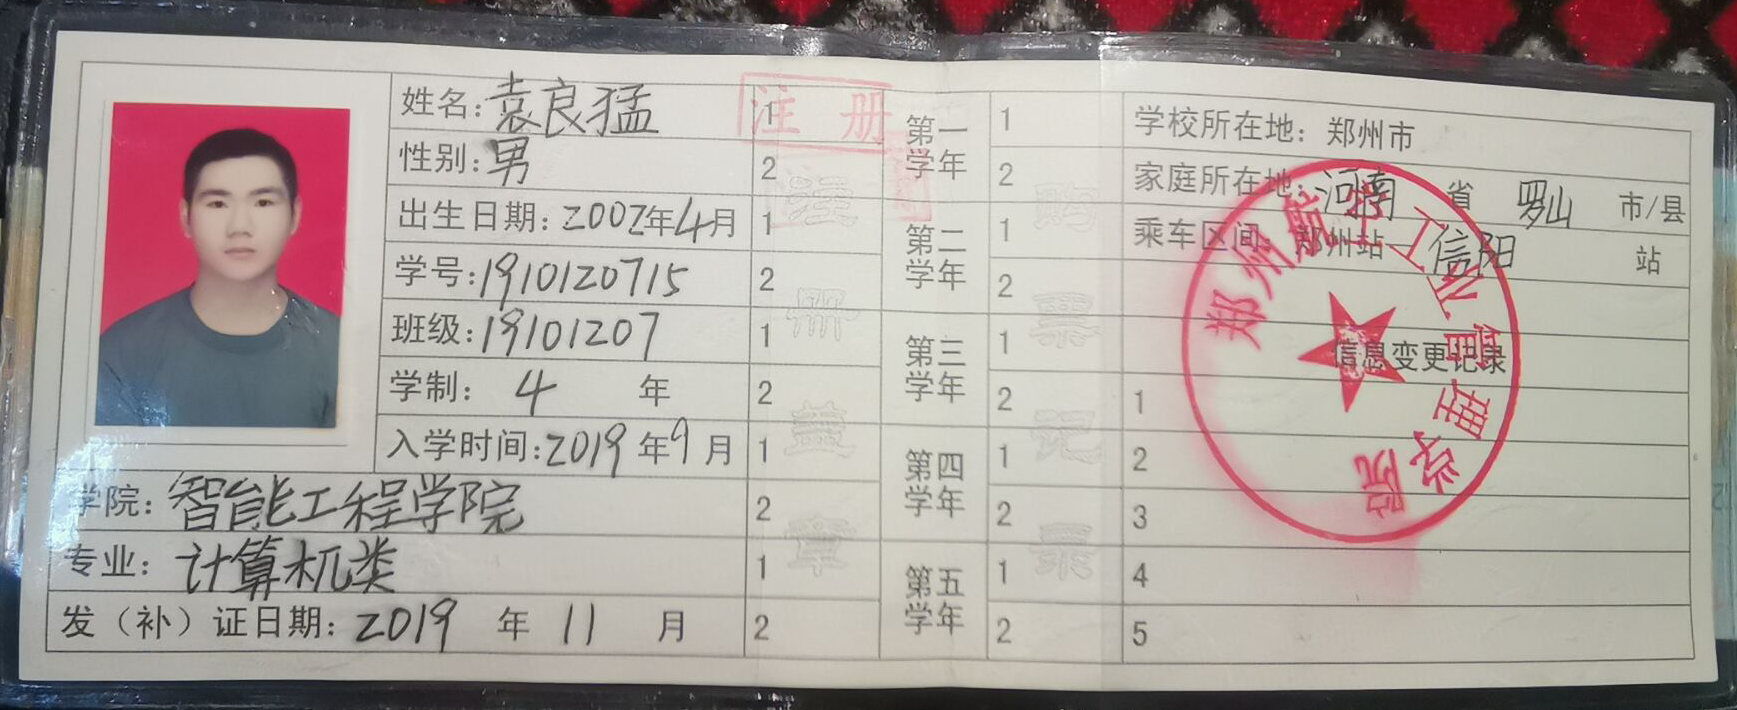 姓名:袁良猛
性别:男
出生日期:2002年4月
学号:1910120715
班级:19101207
学制: 4 年
入学时间:2019年9月
学院:智能工程学院
专业:计算机类
发（补）证日期:2019 年 11 月
注册
1
2
1
2
1
2
1
2
1
2
注册盖章
第一学年
第二学年
第三学年
第四学年
第五学年
1
2
1
2
1
2
1
2
1
2
购票记录
学校所在地: 郑州市
家庭所在地:河南 省 罗山 市/县
乘车区间 郑州站—信阳 站
信息变更记录
1
2
3
4
5
郑州航空工业管理学院